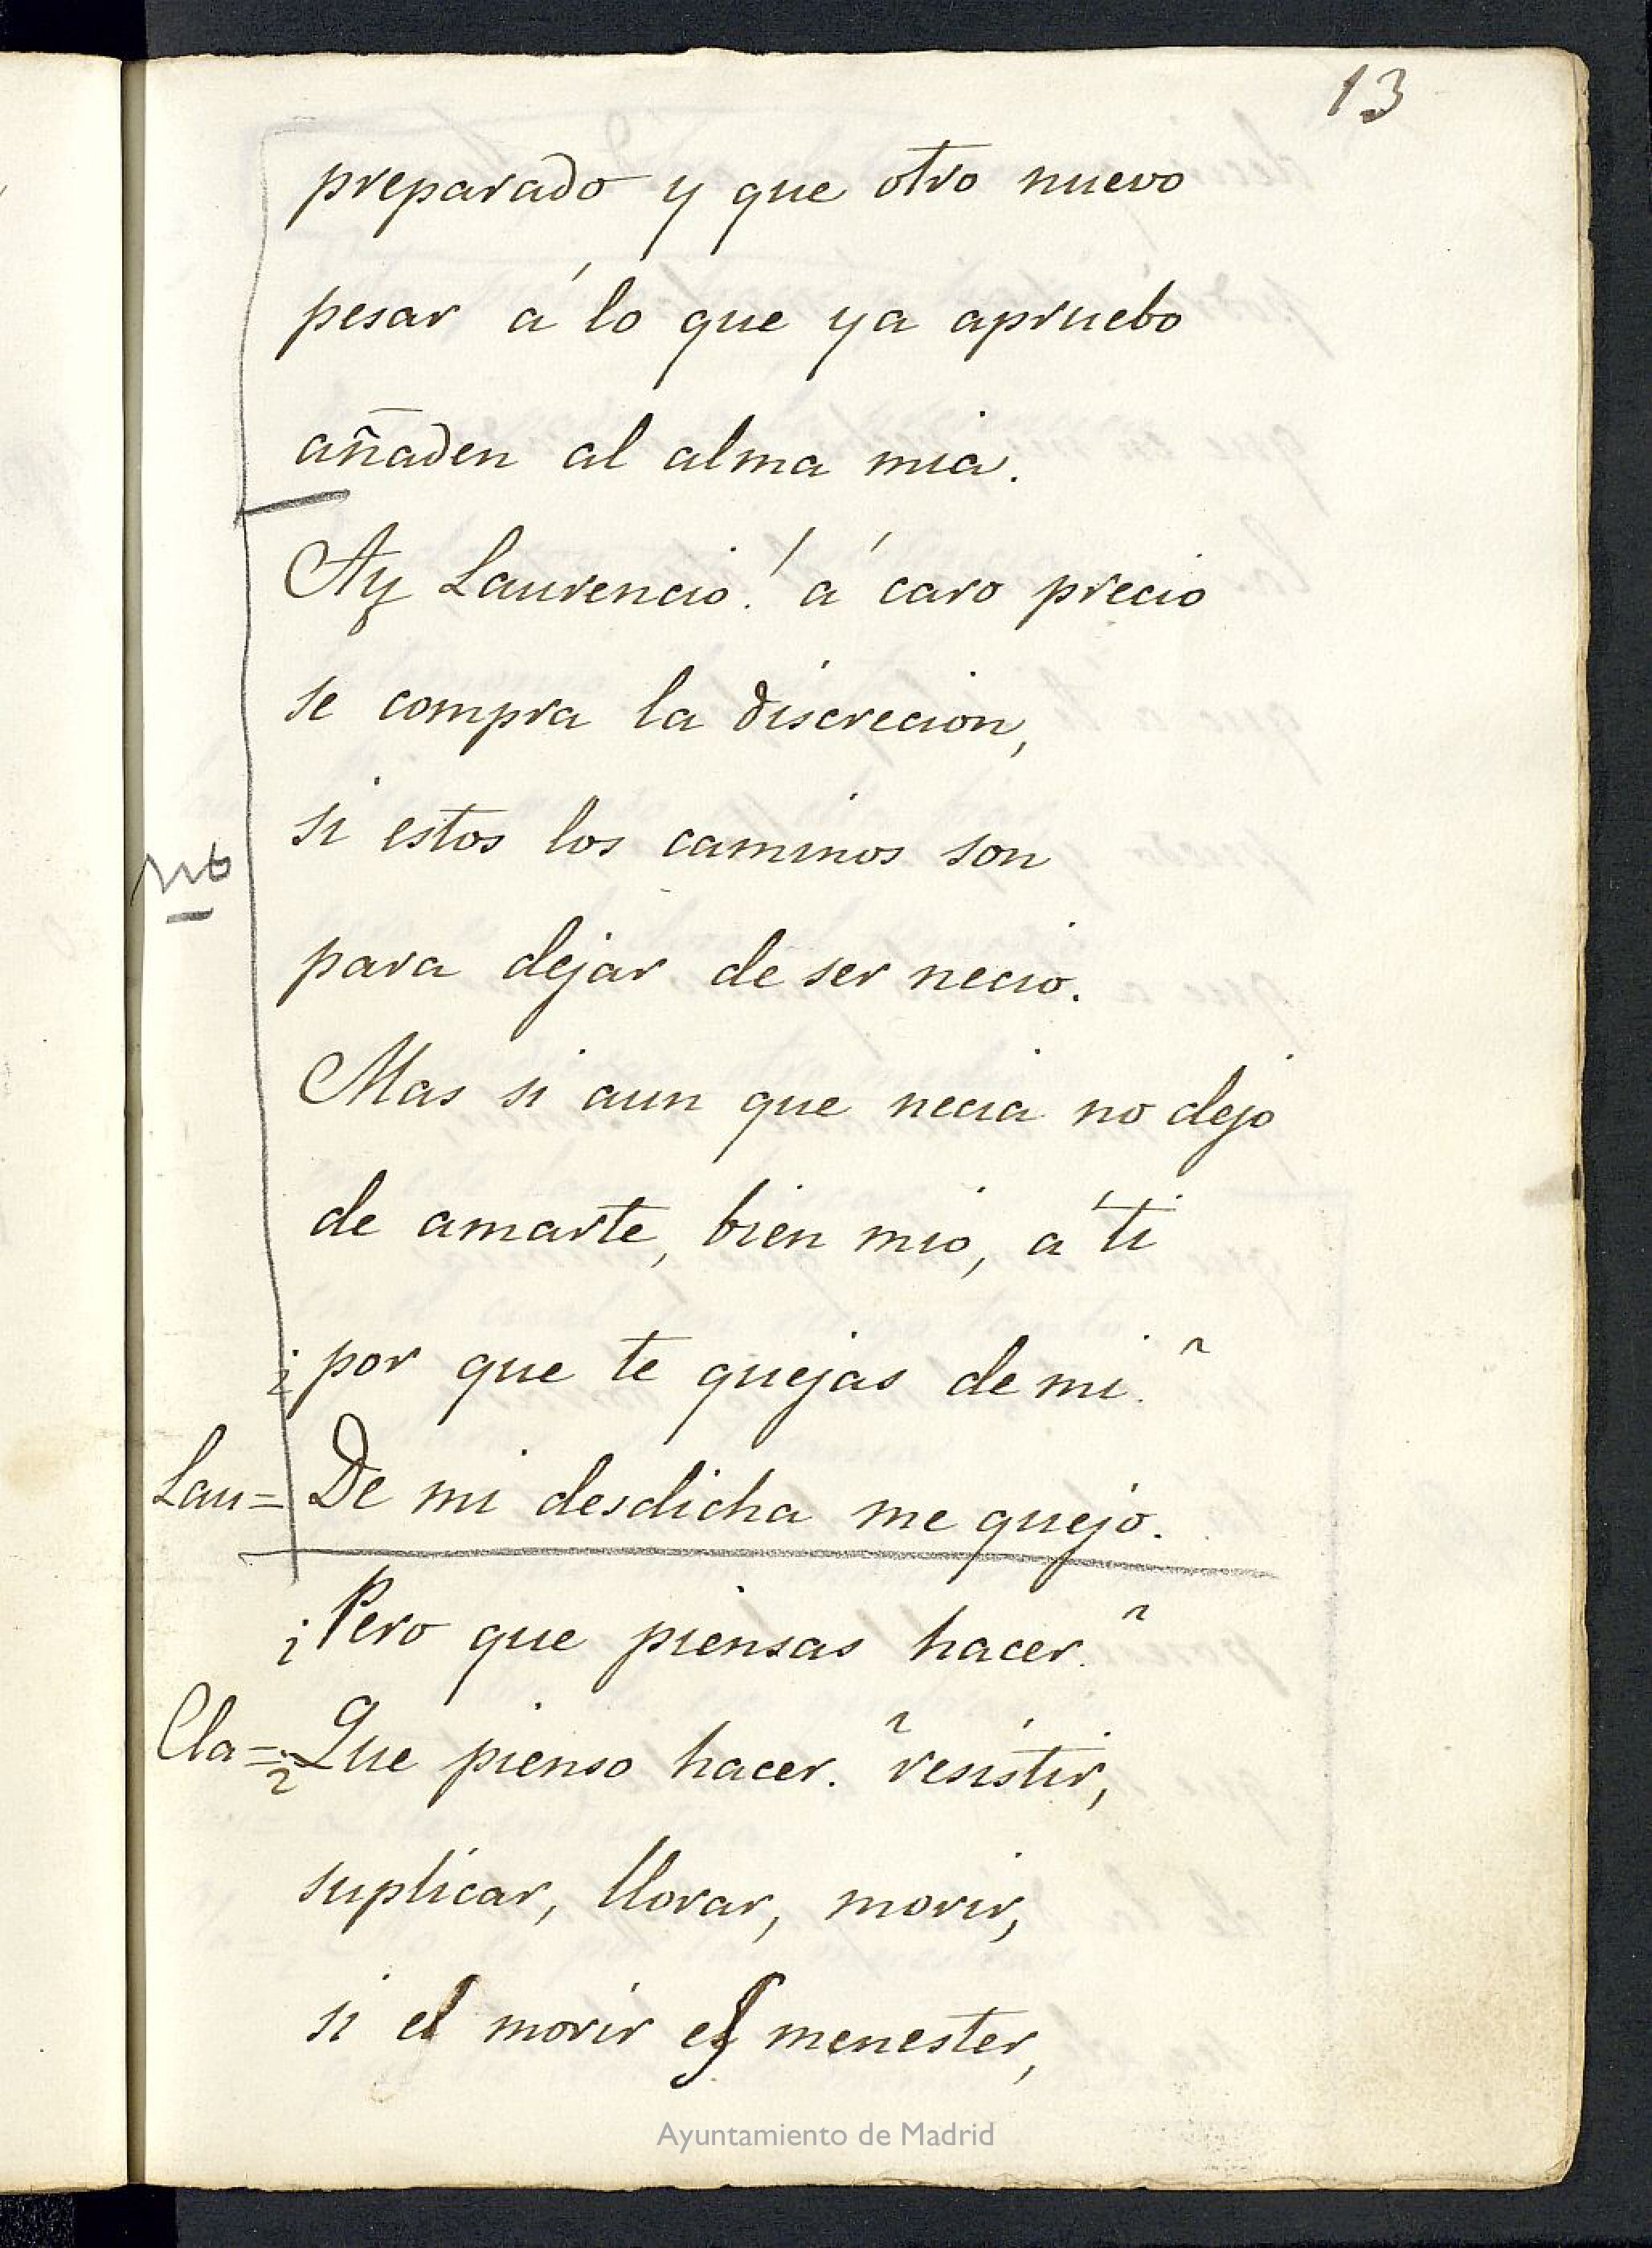 13
preparado y que otro nuevo
pesar á lo que ya apruebo
añaden al alma mia.
Ay Laurencio! á caro precio
se compra la discrecion,
si estos los caminos son
no
para dejar de ser necio.
Mas si aun que necia no dejo
de amarte, bien mio, á ti
¿por que te quejas de mi?
Lau= De mi desdicha me quejo.
¿Pero que piensas hacer?
Cla= ¿Que pienso hacer? resistir,
suplicar, llorar, morir,
si el morir es menester,
Ayuntamiento de Madrid